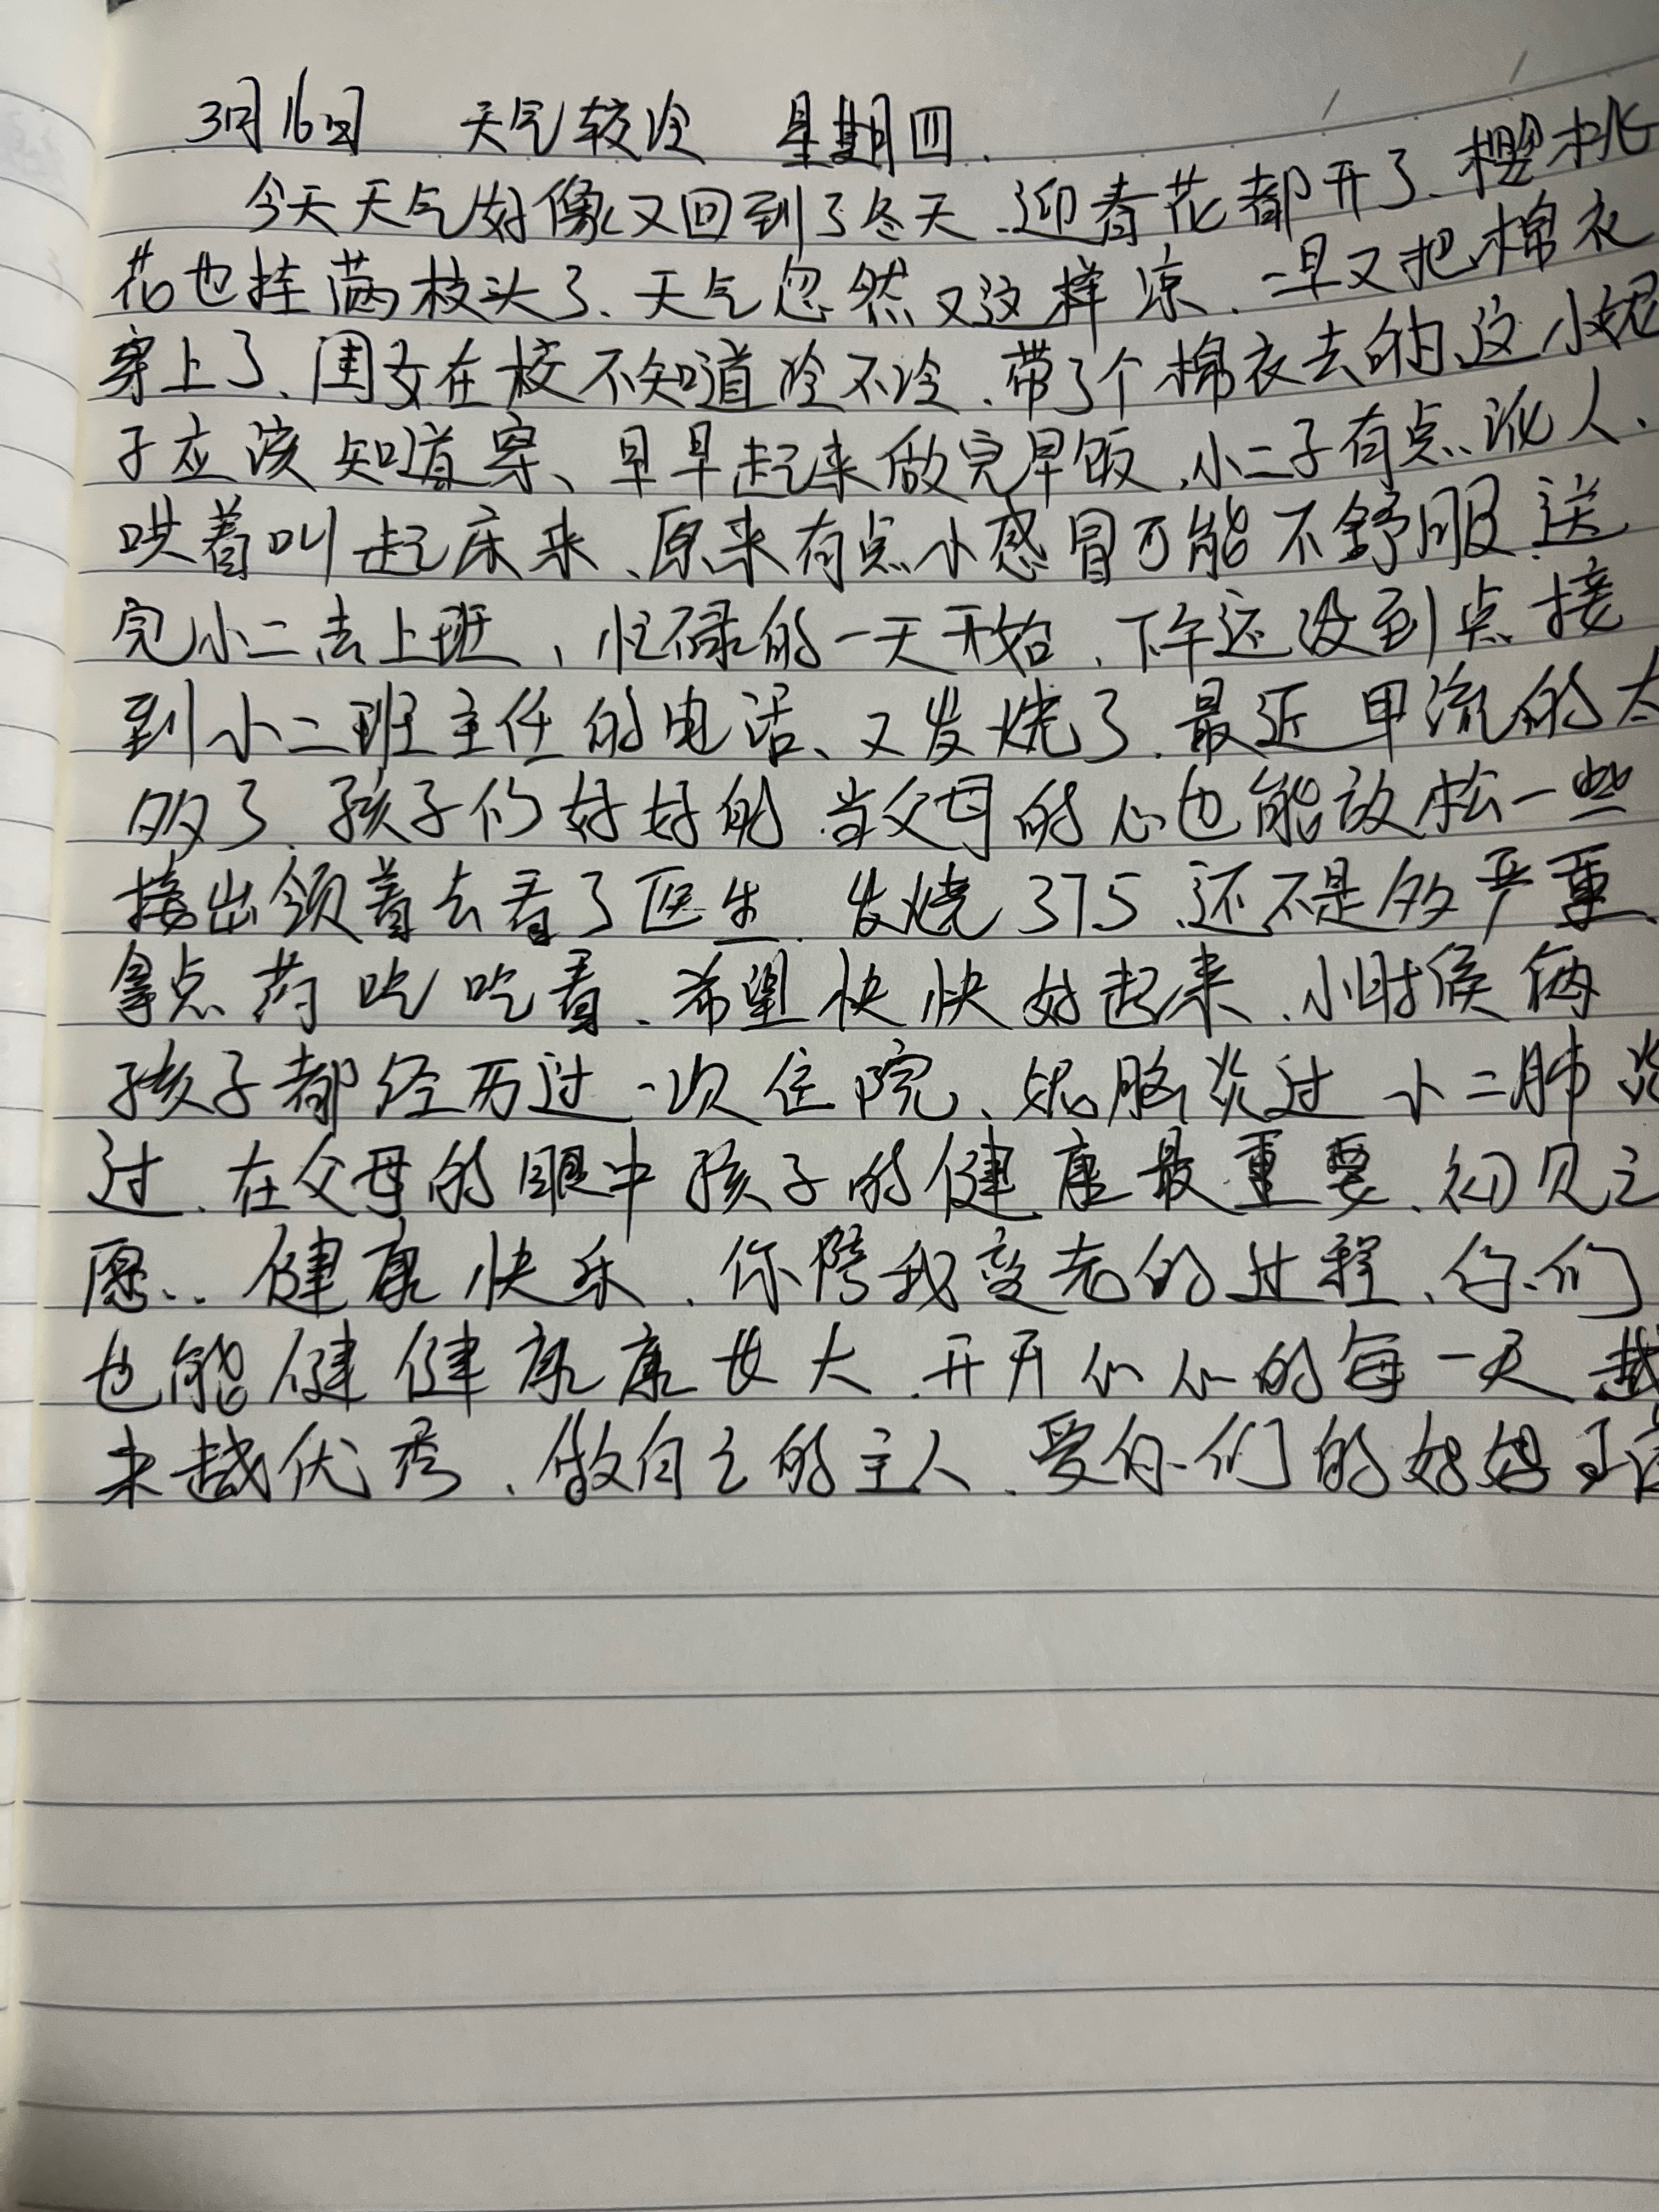 3月16日 天气较冷 星期四.
今天天气好像又回到了冬天、迎春花都开了、樱桃
花也挂满枝头了、天气忽然又这样凉、一早又把棉衣
穿上了、闺女在校不知道冷不冷、带了个棉衣去的、这小妮
子应该知道穿、早早起来做完早饭、小二子有点讹人、
哄着叫起床来、原来有点小感冒可能不舒服、送
完小二去上班、忙碌的一天开始、下午还没到点接
到小二班主任的电话、又发烧了、最近甲流的太
多了、孩子们好好的、当父母的心也能放松一些
接出领着去看了医生、发烧375、还不是多严重、
拿点药吃吃看、希望快快好起来、小时候俩
孩子都经历过一次住院、妮脑炎过 小二肺炎
过、在父母的眼中孩子的健康最重要、初见之
愿、、健康快乐、你陪我变老的过程、你们
也能健健康康长大、开开心心的每一天 越
来越优秀、做自己的主人、爱你们的妈妈